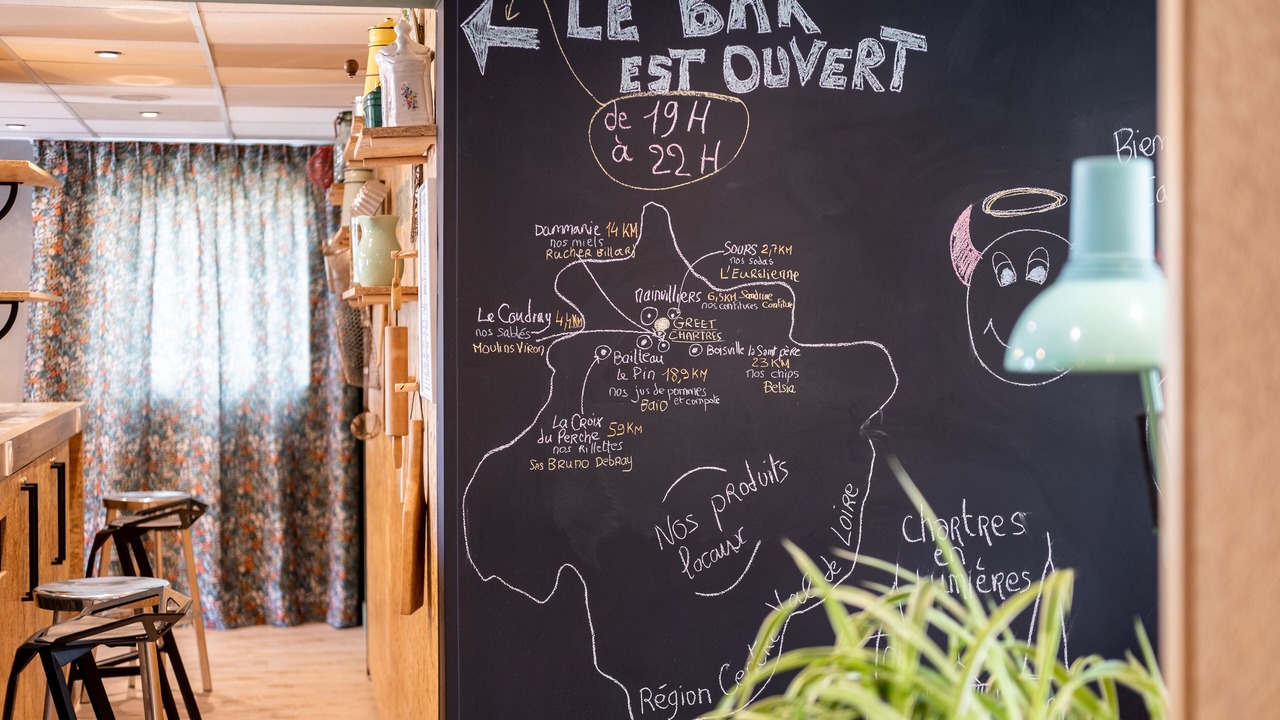 LE BAR
EST OUVERT
de 19H
à 22H
Bien
Dammarie 14 KM
nos miels
RUCHER Billard
SOURS 2,7KM
nos sodas
L'EURÉLIENNE
Mainvilliers 6,5KM Sandrine
nos confitures Confiture
Le Coudray 4,4KM
nos sablés
MOULINS VIRON
GREET
CHARTRES
Bailleau
le Pin 18,9KM
nos jus de pommes
et compote
BAIO
Boisville la Saint père
23 KM
nos chips
Belsia
La Croix
du Perche 59KM
nos Rillettes
SAS BRUNO DEBRAY
Nos produits
locaux
Région Centre Val de Loire
Chartres
en
Lumières